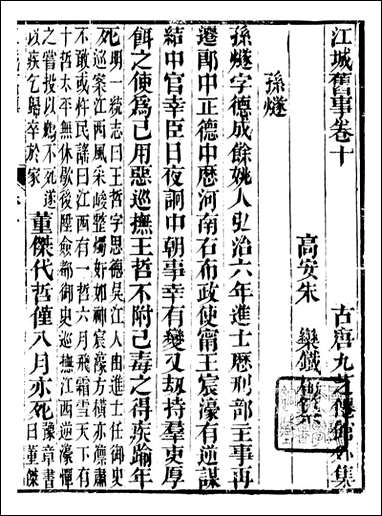 江城舊事卷十 古唐九芝僊館外集
高安朱 欒鐵梅集
孫燧
孫燧字德成餘姚人弘治六年進士歷刑部主事再
遷郎中正德中歷河南右布政使甯王宸濠有逆謀
結中官幸臣日夜詗中朝事幸有變又劫持羣吏厚
餌之使爲己用惡巡撫王哲不附己毒之得疾踰年
死明一統志曰王哲字思德吳江人由進士任御史
巡案江西風采峻整燭奸如神宸濠方橫亦憚肅
不敢或忤民謠曰江西有一哲六月飛霜雪天下有
十哲太平無休歇後陞僉都御史巡撫江西逆濠憚
之嘗投以鴆不死遂
以疾乞歸卒於家
董傑代哲僅八月亦死豫章書
曰董傑